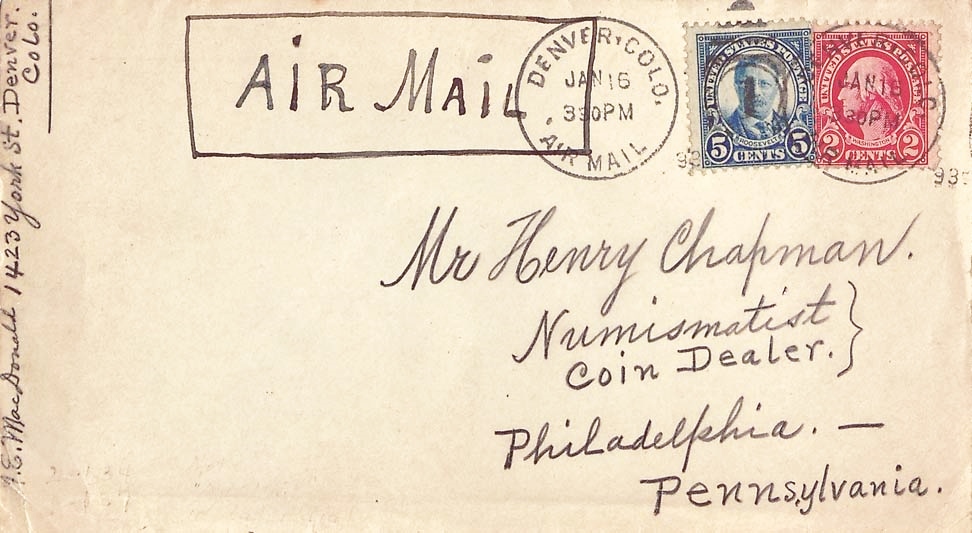 MacDonald 1423 York St. Denver.
Colo.
AIR MAIL
DENVER, COLO.
JAN 16
3 30 PM
AIR MAIL
UNITED STATES POSTAGE
ROOSEVELT
5 CENTS 5
UNITED STATES POSTAGE
WASHINGTON
2 CENTS 2
JAN 16
3 30 PM
Mr Henry Chapman.
Numismatist
Coin Dealer.
Philadelphia. —
Pennsylvania.